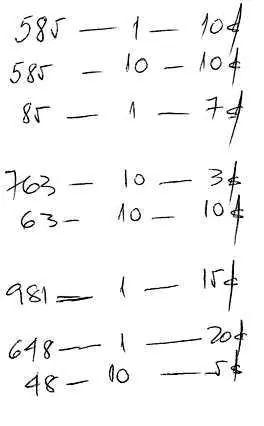 585 — 1 — 10¢
585 — 10 — 10¢
85 — 1 — 7¢
763 — 10 — 3¢
63 — 10 — 10¢
981 — 1 — 15¢
648 — 1 — 20¢
48 — 10 — 5¢